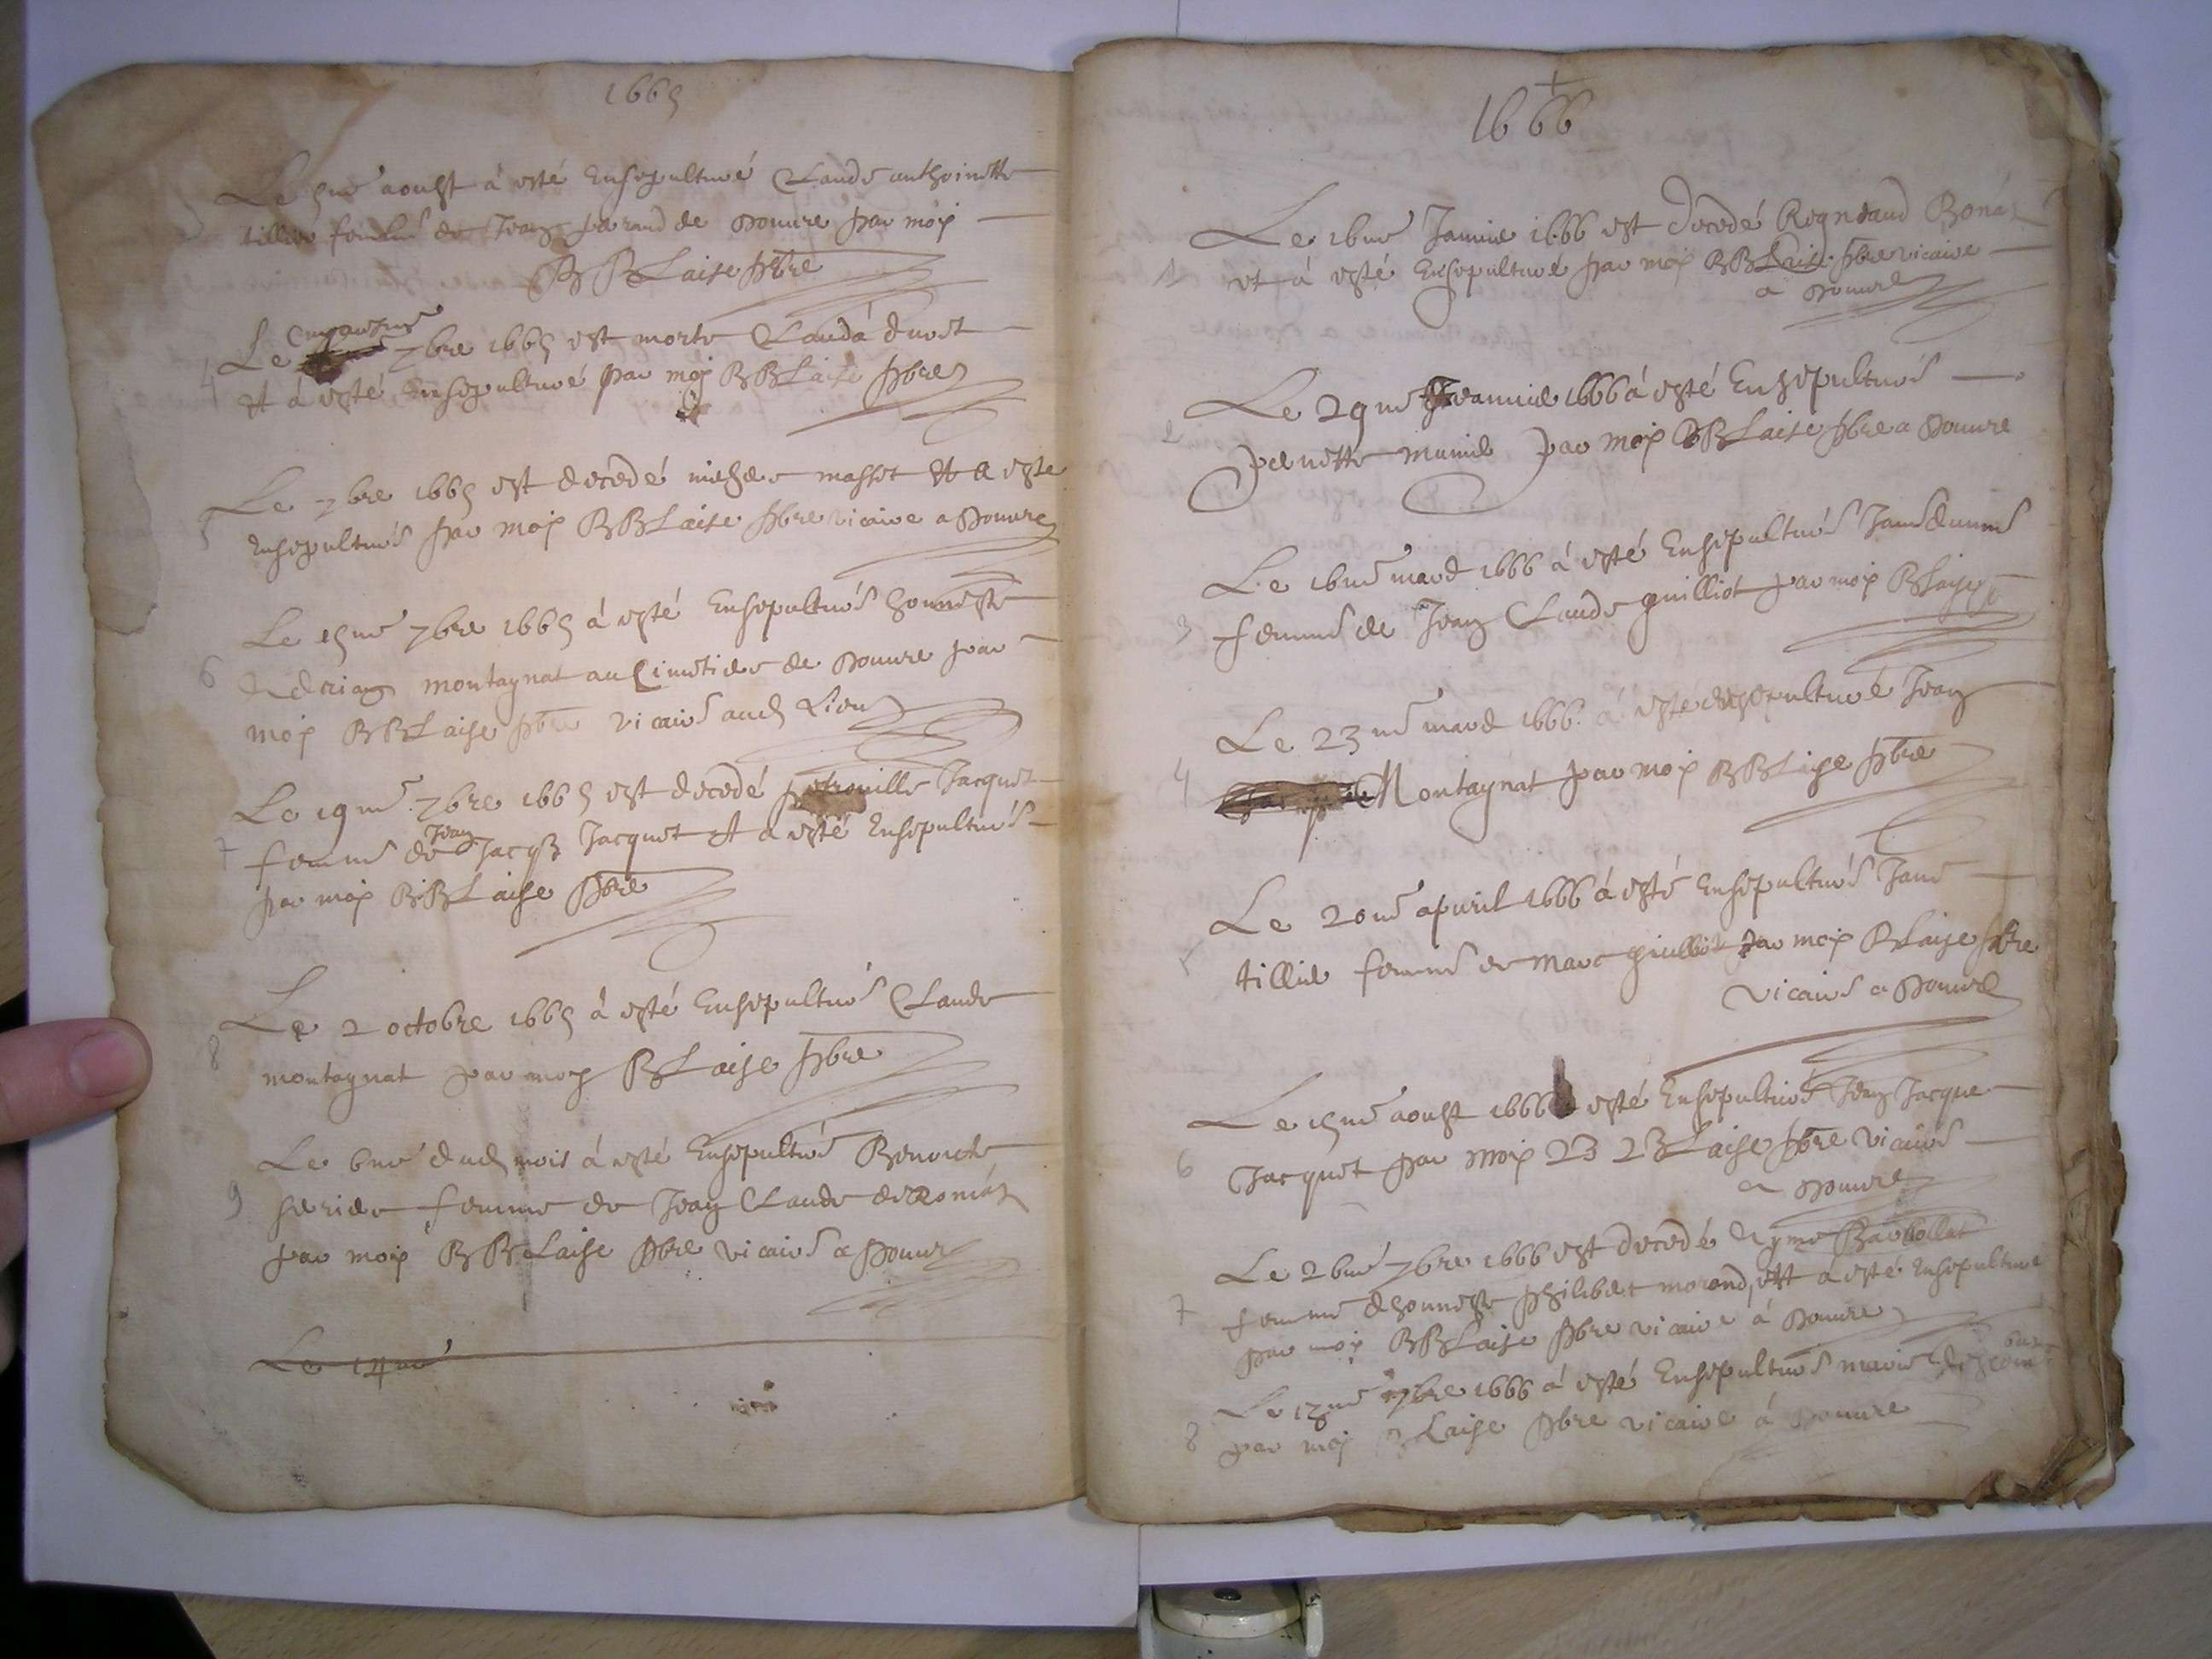 1665
Le 5me aoust à esté Ensepulturé Claude anthoinette
tillier femme de Jean ferrand de Douure par moy
B B Laise pbre
Le 7bre 1665 est morte Clauda
et à esté Ensepulturé par moy B B Laise pbre
4
Le 7bre 1665 est decedé massot et a este
Ensepulturé par moy B B Laise pbre vicaire a Douure
5
Le 15me 7bre 1665 à esté Ensepulturé honneste
6 Adrian montagnat au Cimetiere de Douure par
moy B B Laise pbre vicaire aud Lieu
Le 19me 7bre 1665 est decedé petronille Jacquet
Jean
7 femme de Jacq Jacquet et a esté Ensepulturé
par moy B B Laise pbre
Le 2 octobre 1665 à esté Ensepulturé Claude
8
montagnat par moy B Laise pbre
Le 6me dud mois à esté Ensepulturé Benoicte
9 femme de Jean Claude
par moy B B Laise pbre vicaire a Douure
Le 14me
1666
Le 16me Januier 1666 est decedé Regneaud Bonát
1 et à esté Ensepulturé par moy B B Laise pbre vicaire
a Douure
Le 29me Jeanuier 1666 à esté Ensepulturé
2 pernette munier par moy B B Laise pbre a Douure
Le 16me mars 1666 à esté Ensepulturé
3 femme de Jean Claude guilliot par moy B Laise
Le 23me mars 1666 à esté ensepulturé Jean
4 Montagnat par moy B B Laise pbre
Le 20me apuril 1666 à esté Ensepulturé Jane
5 tillier femme de Marc guilliot par moy B Laise pbre
vicaire a Douure
Le 15me aoust 1666 esté Ensepulturé Jean Jacque
6 Jacquet par moy B B Laise pbre vicaire
a Douure
Le 26me 7bre 1666 est decedé Aymé
7 femme dhonneste philibert morand, et a esté Ensepulturé
par moy B B Laise pbre vicaire à Douure
Le 7bre 1666 à esté Ensepulturé marie
8 par moy B Laise pbre vicaire à Douure